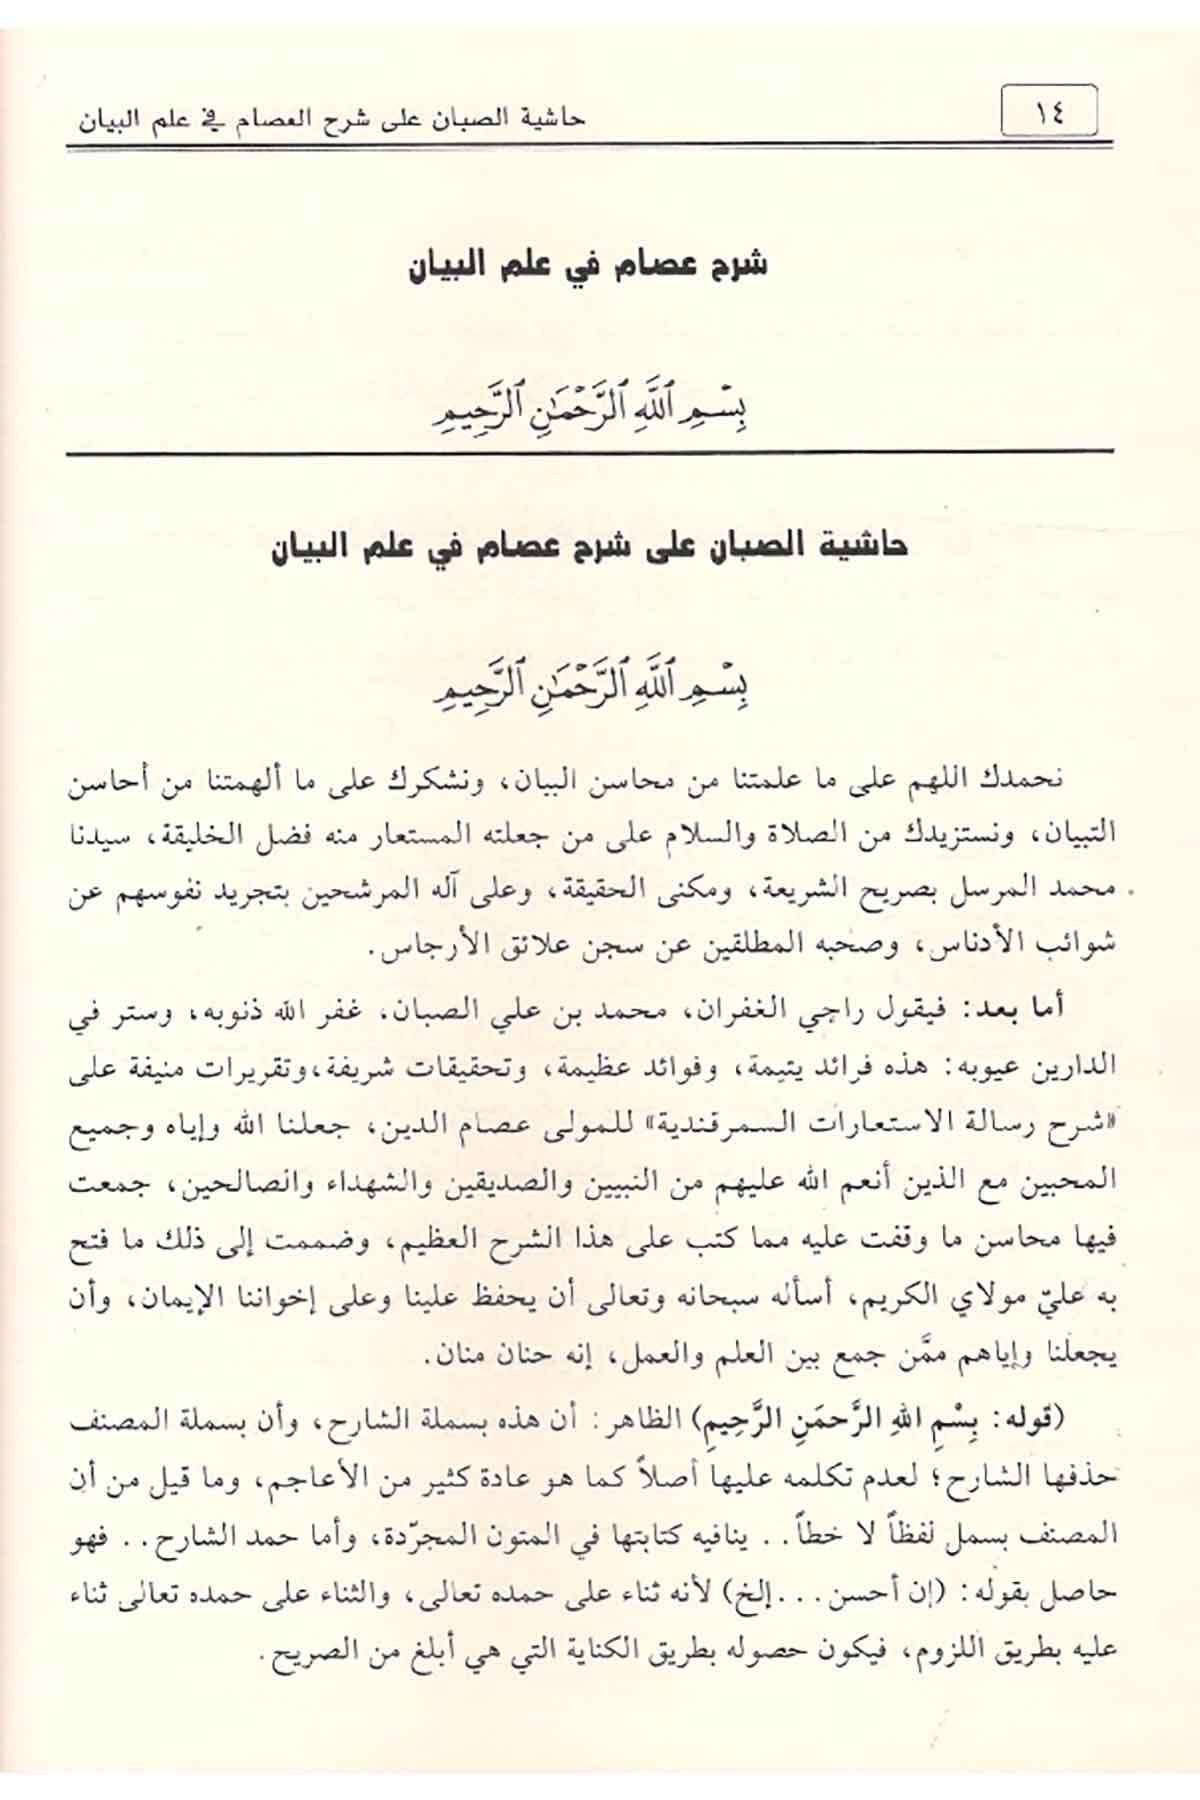 ١٤
حاشية الصبان على شرح العصام في علم البيان
شرح عصام في علم البيان
بِسْمِ ٱللَّهِ ٱلرَّحْمَٰنِ ٱلرَّحِيمِ
حاشية الصبان على شرح عصام في علم البيان
بِسْمِ ٱللَّهِ ٱلرَّحْمَٰنِ ٱلرَّحِيمِ
نحمدك اللهم على ما علمتنا من محاسن البيان، ونشكرك على ما ألهمتنا من أحاسن
التبيان، ونستزيدك من الصلاة والسلام على من جعلته المستعار منه فضل الخليقة، سيدنا
محمد المرسل بصريح الشريعة، ومكنى الحقيقة، وعلى آله المرشحين بتجريد نفوسهم عن
شوائب الأدناس، وصحبه المطلقين عن سجن علائق الأرجاس.
أما بعد: فيقول راجي الغفران، محمد بن علي الصبان، غفر الله ذنوبه، وستر في
الدارين عيوبه: هذه فرائد يتيمة، وفوائد عظيمة، وتحقيقات شريفة، وتقريرات منيفة على
«شرح رسالة الاستعارات السمرقندية» للمولى عصام الدين، جعلنا الله وإياه وجميع
المحبين مع الذين أنعم الله عليهم من النبيين والصديقين والشهداء والصالحين، جمعت
فيها محاسن ما وقفت عليه مما كتب على هذا الشرح العظيم، وضممت إلى ذلك ما فتح
به عليّ مولاي الكريم، أسأله سبحانه وتعالى أن يحفظ علينا وعلى إخواننا الإيمان، وأن
يجعلنا وإياهم ممَّن جمع بين العلم والعمل، إنه حنان منان.
(قوله: بِسْمِ اللهِ الرَّحمَنِ الرَّحِيمِ) الظاهر: أن هذه بسملة الشارح، وأن بسملة المصنف
حذفها الشارح؛ لعدم تكلمه عليها أصلاً كما هو عادة كثير من الأعاجم، وما قيل من أن
المصنف بسمل لفظاً لا خطاً.. ينافيه كتابتها في المتون المجرّدة، وأما حمد الشارح.. فهو
حاصل بقوله: (إن أحسن...إلخ) لأنه ثناء على حمده تعالى، والثناء على حمده تعالى ثناء
عليه بطريق اللزوم، فيكون حصوله بطريق الكناية التي هي أبلغ من الصريح.